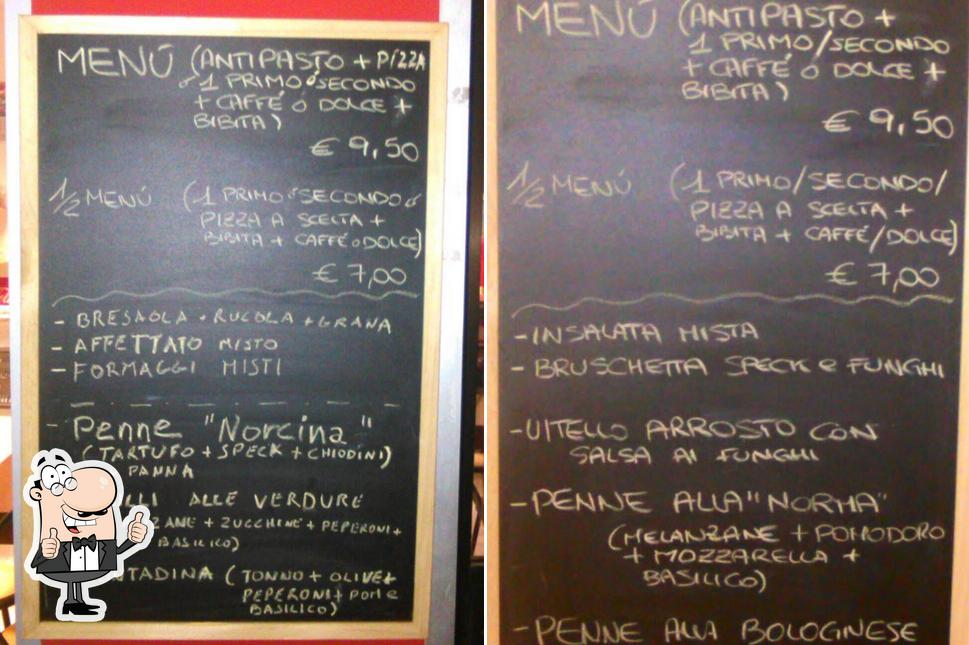 MENÚ (ANTIPASTO + PIZZA
ó 1 PRIMO ó SECONDO
+ CAFFÉ Ó DOLCE +
BIBITA)
€ 9,50
1/2 MENÚ (1 PRIMO ó SECONDO ó
PIZZA A SCELTA +
BIBITA + CAFFÉ O DOLCE)
€ 7,00
- BRESAOLA + RUCOLA + GRANA
- AFFETTATO MISTO
- FORMAGGI MISTI
- Penne "Norcina"
(TARTUFO + SPECK + CHIODINI)
PANNA
ALLE VERDURE
ZANE + ZUCCHINE + PEPERONI +
BASILICO)
TADINA (TONNO + OLIVE +
PEPERONI + POM e
BASILICO)
MENÚ (ANTIPASTO +
1 PRIMO/SECONDO
+ CAFFÉ Ó DOLCE +
BIBITA)
€ 9,50
1/2 MENÚ (1 PRIMO/SECONDO/
PIZZA A SCELTA +
BIBITA + CAFFÉ/DOLCE)
€ 7,00
- INSALATA MISTA
- BRUSCHETTA SPECK e FUNGHI
- VITELLO ARROSTO CON
SALSA AI FUNGHI
- PENNE ALLA "NORMA"
(MELANZANE + POMODORO
+ MOZZARELLA +
BASILICO)
- PENNE ALLA BOLOGNESE